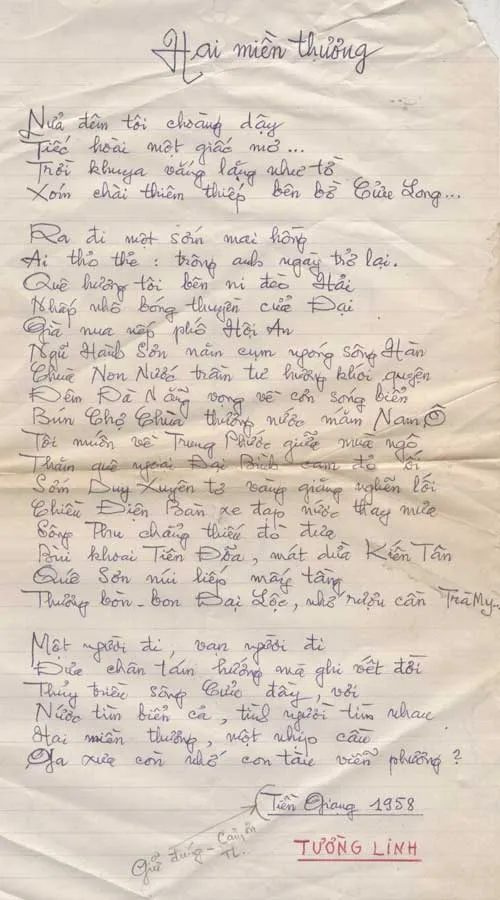 Hai miền thương
Nửa đêm tôi choàng dậy
Tiếc hoài một giấc mơ...
Trời khuya vắng lặng như tờ
Xóm chài thiêm thiếp bên bờ Cửu Long...
Ra đi một sớm mai hồng
Ai thỏ thẻ: trông anh ngày trở lại.
Quê hương tôi bên ni đèo Hải
Nhấp nhô bóng thuyền cửa Đại
Già nua nếp phố Hội An
Ngũ Hành Sơn nằm cụm ngóng sông Hàn
Chùa Non Nước trầm tư hương khói quyện
Đêm Đà Nẵng vọng về cơn song biển
Bún Chợ Chùa thương nước mắm Nam Ô
Tôi muốn về Trung Phước giữa mùa ngô
Thăm quê ngoại Đại Bình cam đỏ ối
Sớm Duy Xuyên tơ vàng giăng nghẽn lối
Chiều Điện Bàn xe đạp nước thay mưa
Sông Thu chẳng thiếu đò đưa
Bùi khoai Tiên Đõa, mát dừa Kiến Tân
Quế Sơn núi liếp mây tầng
Thương bòn-bon Đại Lộc, nhớ rượu cần Trà My..
Một người đi, vạn người đi
Đưa chân tám hướng mà ghi vết đời
Thủy triều sông Cửu đầy, vơi
Nước tìm biển cả, tình người tìm nhau
Hai miền thương, một nhịp cầu
Ga xưa còn nhớ con tàu viễn phương?
Tiền Giang 1958
TƯỜNG LINH
đúng - Cảm ơn
TL.